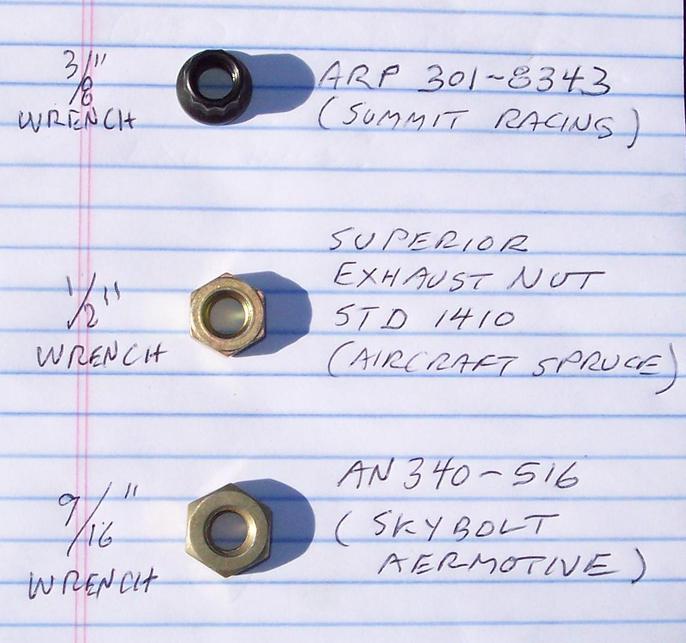 3/8" WRENCH
ARP 301-8343
(SUMMIT RACING)
1/2" WRENCH
SUPERIOR
EXHAUST NUT
STD 1410
(AIRCRAFT SPRUCE)
9/16" WRENCH
AN 340-516
(SKYBOLT
AERMOTIVE)